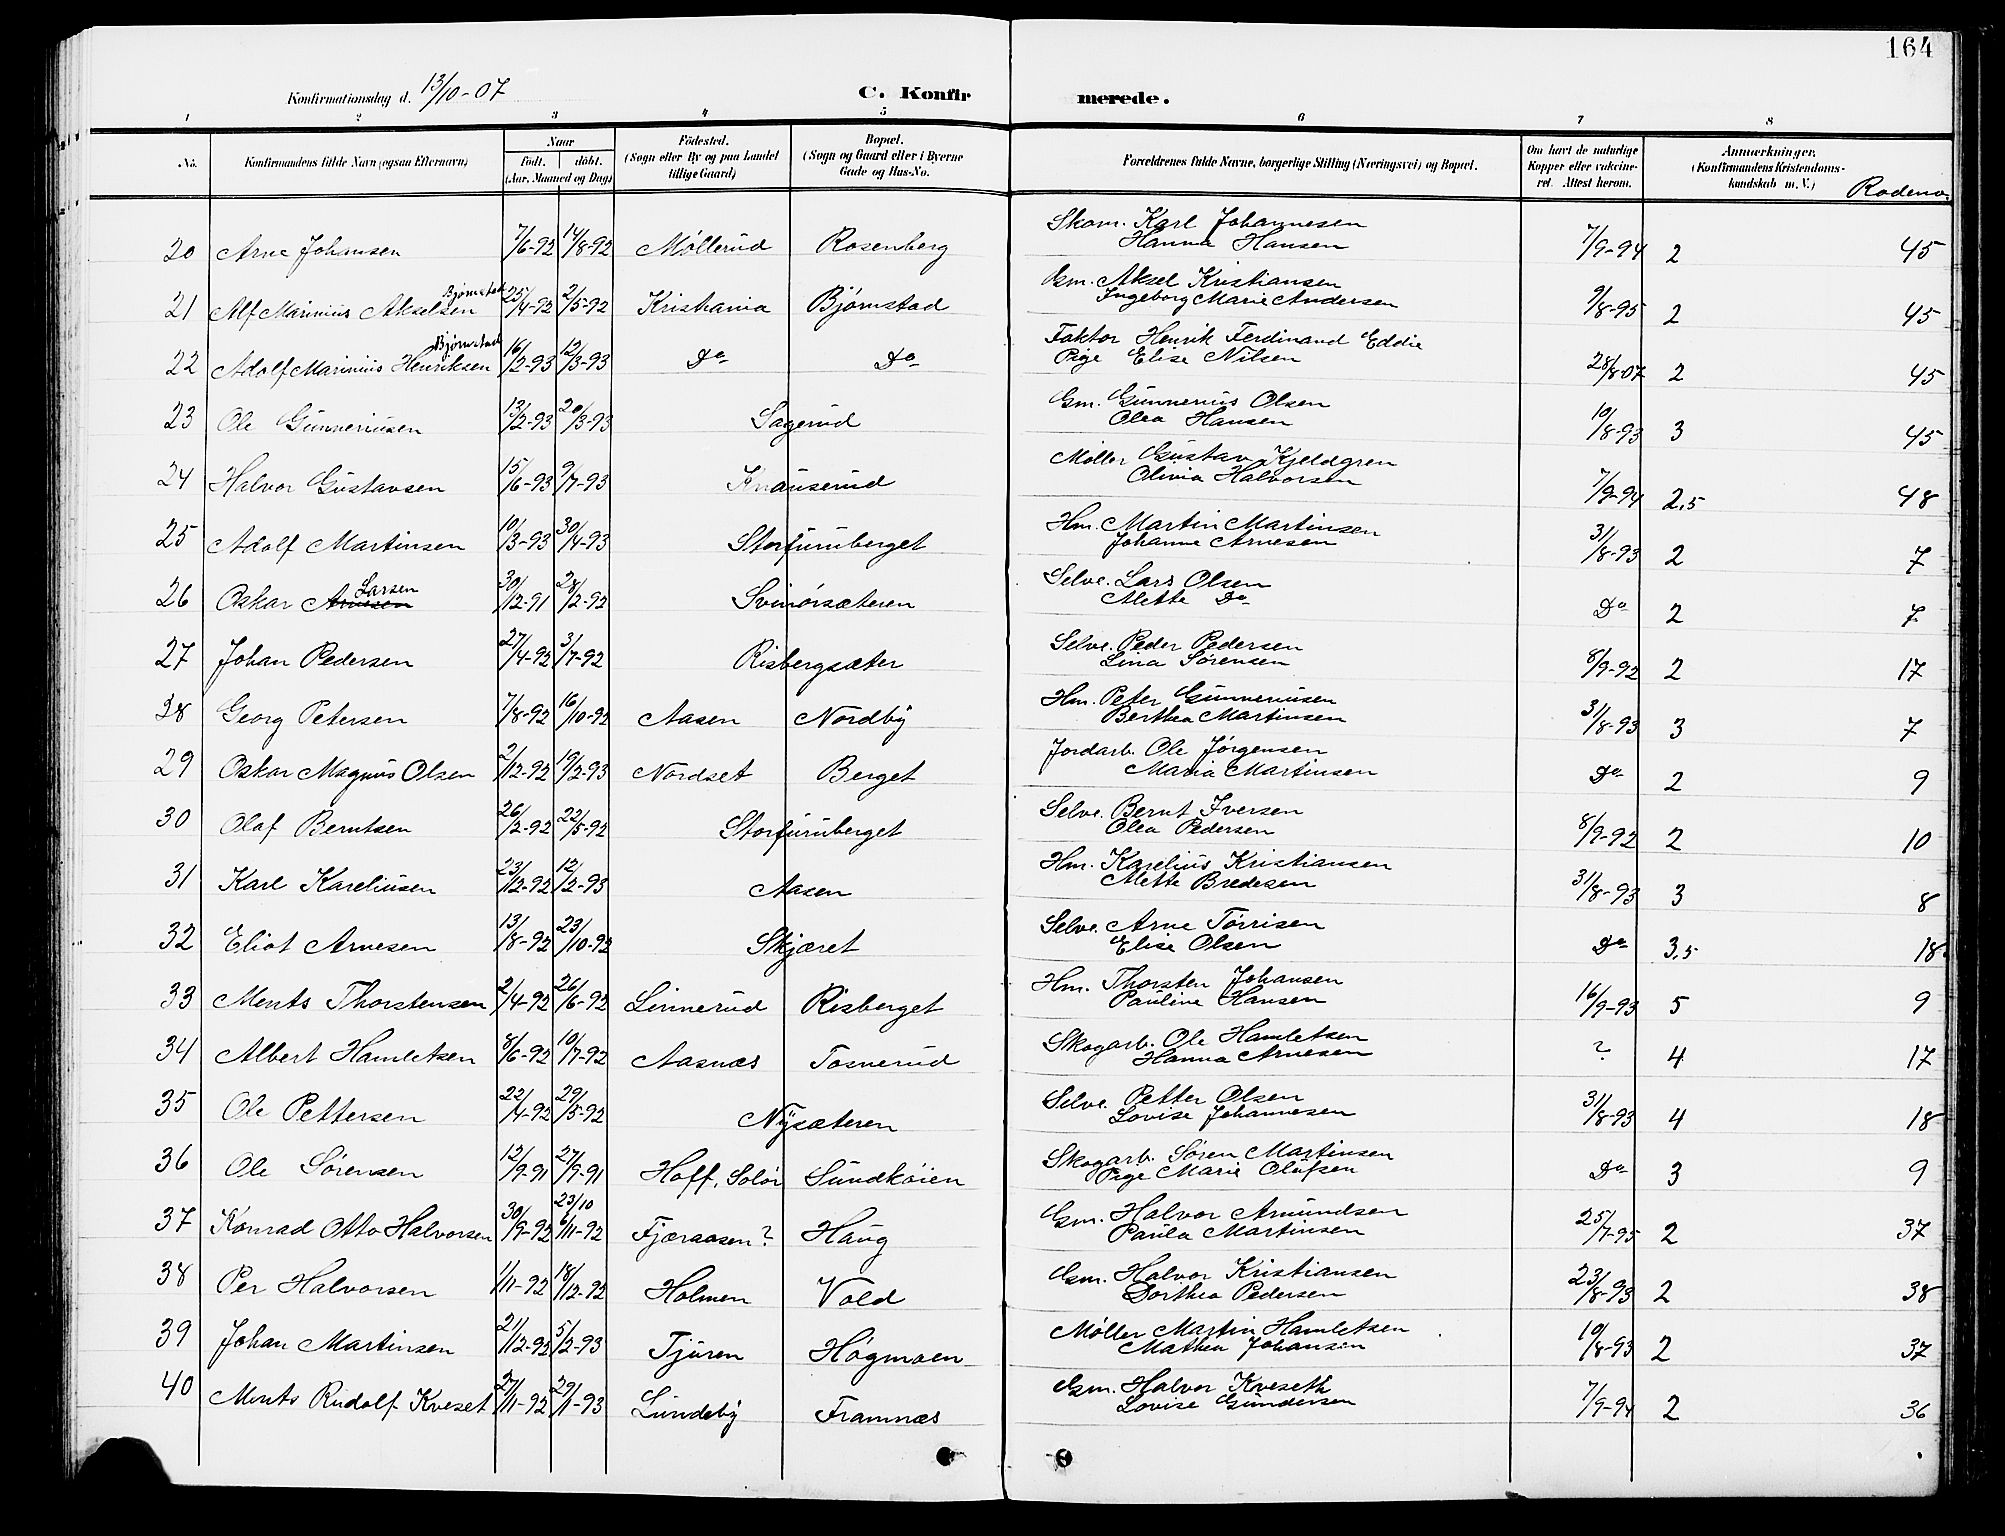 164
Konfirmationsdag d. 13/10-07 C. Konfirmerede.
1 2 3 4 5 6 7 8
No. Konfirmandens fulde Navn (ogsaa Efternavn) Naar født. døbt. (Aar, Maaned og Dag) Fødested. (Sogn eller By og paa Landet tillige Gaard) Bopæl. (Sogn og Gaard eller i Byerne Gade og Hus-No. Forældrenes fulde Navne, borgerlige Stilling (Næringsvei) og Bopæl. Om havt de naturlige Kopper eller vakcineret. Attest herom. Anmærkninger. (Konfirmandens Kristendomskundskab m. V.) Rodeno.
20 Arne Johansen 7/6-92 14/8-92 Møllerud Rosenberg Skom. Karl Johannesen
Hanna Hansen 7/9-94 2 45
21 Alf Marinius Akselsen Bjørnstad 25/4-92 2/5-92 Kristiania Bjørnstad Gm. Aksel Kristiansen
Ingeborg Marie Andersen 9/8-95 2 45
22 Adolf Marinius Henriksen Bjørnstad 16/2-93 12/3-93 Do Do Faktor Henrik Ferdinand Eddie
Pige Elise Nilsen 28/8-07 2 45
23 Ole Gunneriusen 13/2-93 20/3-93 Sagerud Gm. Gunnerius Olsen
Olea Hansen 10/8-93 3 45
24 Halvor Gustavsen 15/6-93 9/7-93 Knauserud Møller Gustav Kjeldgren
Olivia Halvorsen 7/9-94 2,5 48
25 Adolf Martinsen 10/3-93 30/4-93 Storfuruberget Hm. Martin Martinsen
Johanne Arnesen 31/8-93 2 7
26 Oskar Arnesen Larsen 30/12-91 28/2-92 Svinørsæteren Selve. Lars Olsen
Alette Do Do 2 7
27 Johan Pedersen 27/4-92 3/7-92 Risbergsæter Selve. Peder Pedersen
Lina Sørensen 8/9-92 2 17
28 Georg Petersen 7/8-92 16/10-92 Aasen Nordby Hm. Peter Gunneriusen
Berthea Martinsen 31/8-93 3 7
29 Oskar Magnus Olsen 2/12-92 19/2-93 Nordset Berget Jordarb. Ole Jørgensen
Maria Martinsen Do 2 9
30 Olaf Berntsen 26/2-92 22/5-92 Storfuruberget Selve. Bernt Iversen
Olea Pedersen 8/9-92 2 10
31 Karl Kareliusen 23/12-92 12/2-93 Aasen Hm. Karelius Kristiansen
Alette Bredesen 31/8-93 3 8
32 Eliot Arnesen 13/8-92 23/10-92 Skjæret Selve. Arne Tørrisen
Elise Olsen Do 3,5 18
33 Ments Thorstensen 2/4-92 26/6-92 Linnerud Risberget Hm. Thorsten Johansen
Pauline Hansen 16/9-93 5 9
34 Albert Hamletsen 8/6-92 10/7-92 Aasnæs Tosnerud Skogarb. Ole Hamletsen
Hanna Arnesen ? 4 17
35 Ole Pettersen 22/4-92 29/5-92 Nysæteren Selve. Petter Olsen
Lovise Johannesen 31/8-93 4 18
36 Ole Sørensen 12/9-91 27/9-91 Hoff, Solør Sundkøien Skogarb. Søren Martinsen
Pige Marie Olufsen Do 3 9
37 Konrad Otto Halvorsen 30/9-92 23/10 6/11-92 Fjæraasen? Haug Gm. Halvor Amundsen
Paula Martinsen 25/7-95 2 37
38 Per Halvorsen 1/11-92 18/12-92 Holmen Vold Gm. Halvor Kristiansen
Dorthea Pedersen 23/8-93 2 38
39 Johan Martinsen 21/12-92 5/2-93 Tjuren Høgmoen Møller Martin Hamletsen
Mathea Johansen 10/8-93 2 37
40 Ments Rudolf Kveset 27/11-92 29/1-93 Lundeby Framnæs Gm. Halvor Kveseth
Lovise Gundersen 7/9-94 2 36